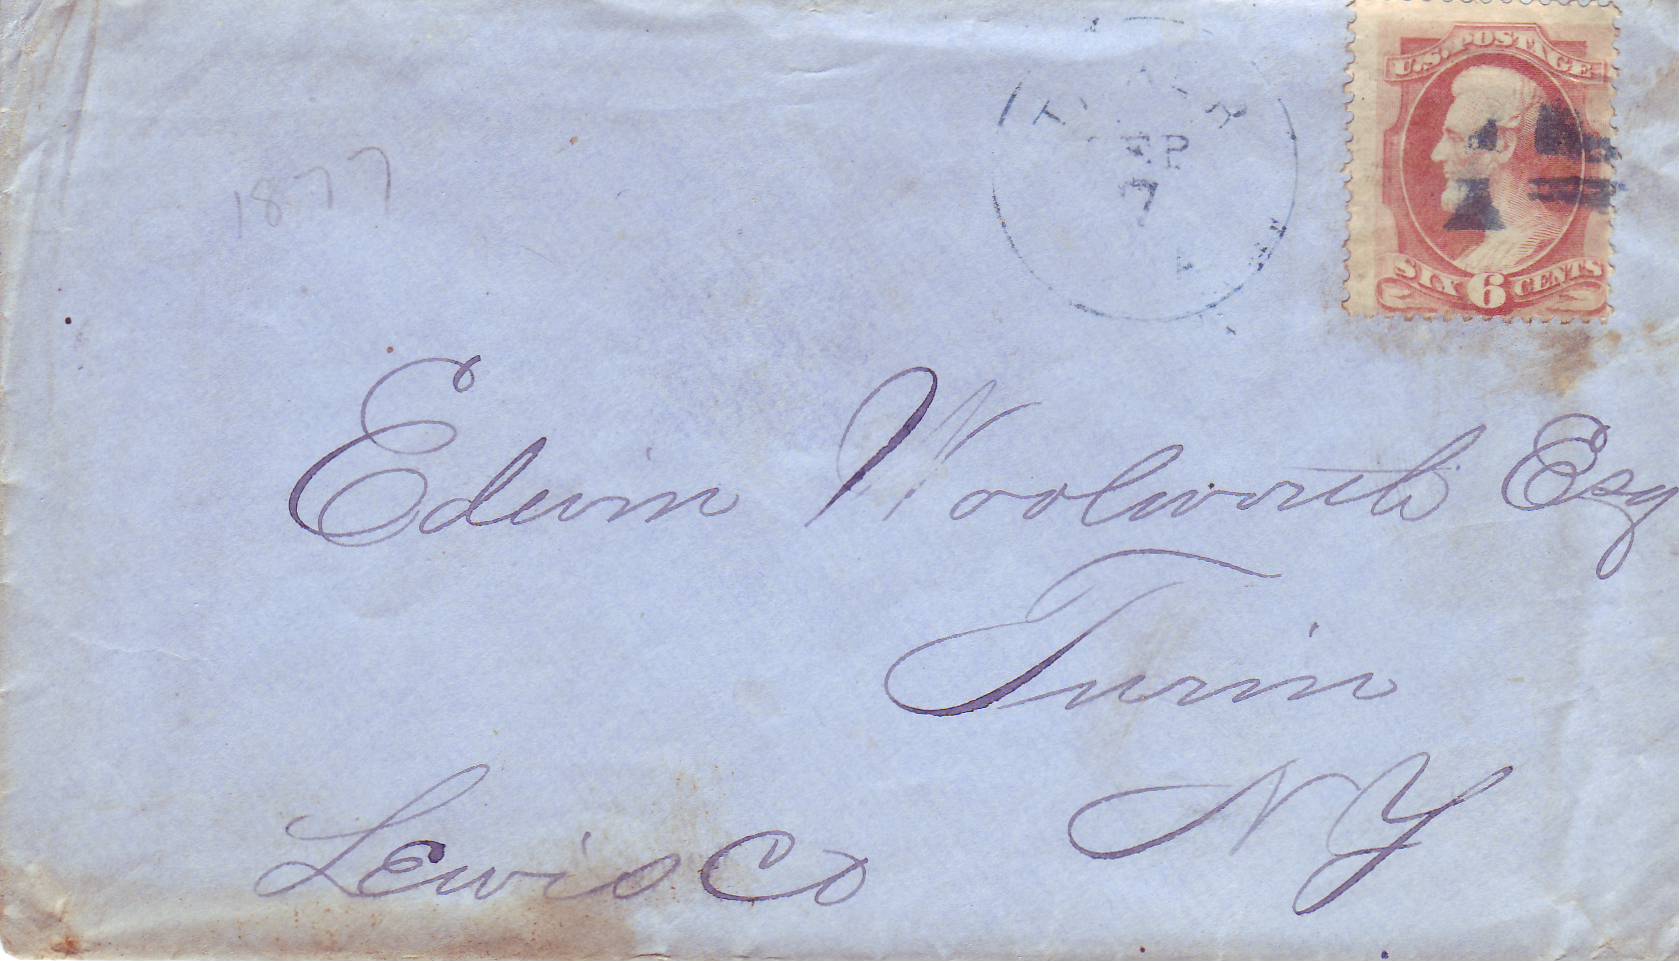 U.S. POSTAGE
SIX 6 CENTS
EP
7
1877
Edwin Woolworth Esq
Turin
NY
Lewis Co